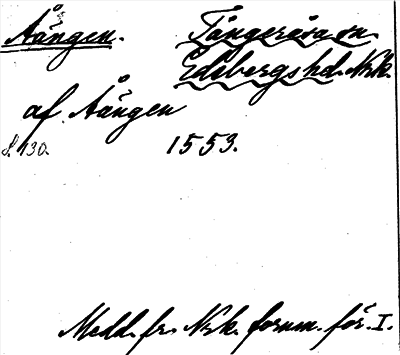 Åängen. Tångeråsa sn.
Edsbergs hd. Nrk.
af Åängen
S. 130. 1553.
Medd. fr. Nrk. fornm. för. I.